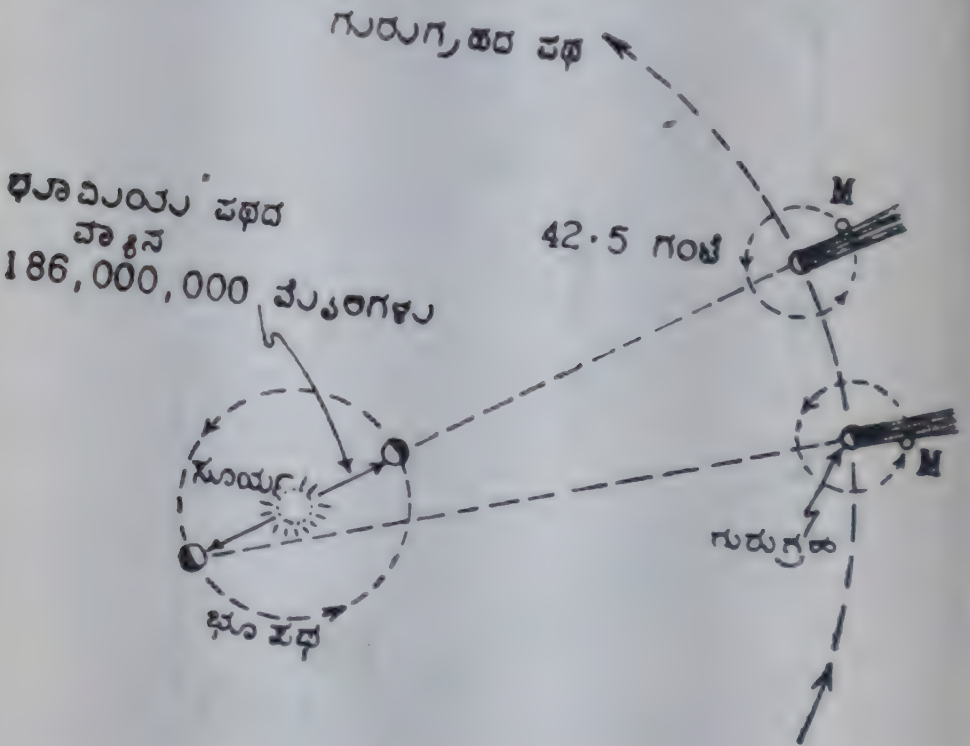 ಗುರುಗ್ರಹದ ಪಥ
ಭೂಮಿಯ ಪಥದ
ವ್ಯಾಸ
186,000,000 ಮೈಲಿಗಳು
42·5 ಗಂಟೆ
M
ಸೂರ್ಯ
M
ಗುರುಗ್ರಹ
ಭೂ ಪಥ